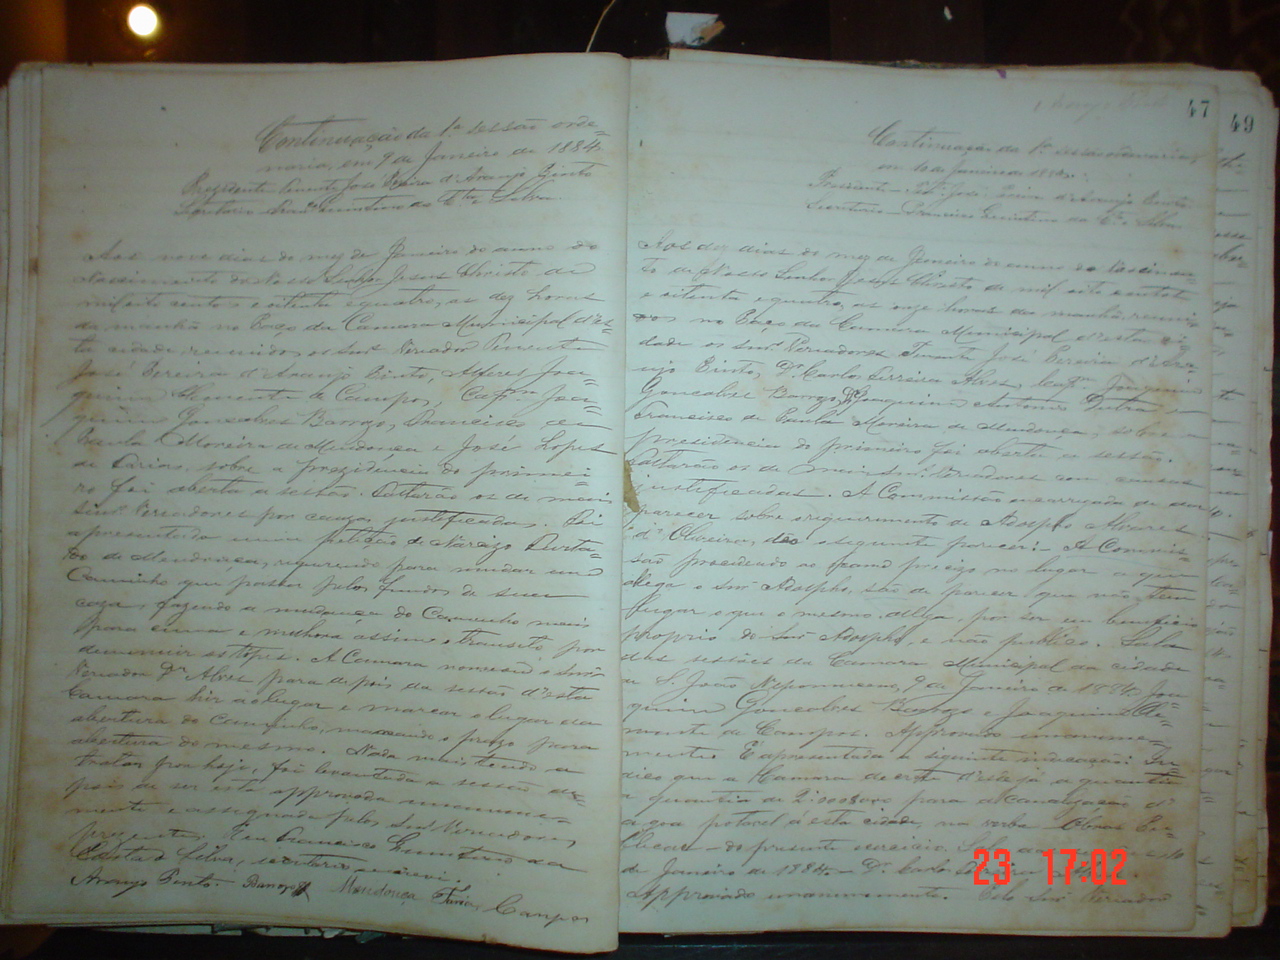 Continuação da 1ª sessão orde=
naria, em 9 de Janeiro de 1884.
Prezidente Tenente José Pereira d'Araujo Pinto
Secretario Franco Emenitino da Cta e Silva
Aos nove dias do mez de Janeiro do anno do
Nascimento de Nosso Senhor Jesus Christo de
mil oito centos e oitenta e quatro, as dez horas
da manhã no Paço da Camara Municipal d'es=
ta cidade, reunidos os Snrs Vereador Tenente
José Pereira d'Araujo Pinto, Alferes Joa=
quim Clemente de Campos, Capm Joa=
quim Gonçalves Barroso, Francisco de
Paula Moreira de Mendonça e José Lopes
de Faria, sobre a prezidencia do primei=
ro foi aberta a sessão. Faltarão os de mais
Snrs Vereadores por cauza justificada. Foi
apresentada uma petição de Narcizo Furta=
do de Mendonça, requerendo para mudar um
Caminho que passa pelos fundos de sua
caza, fazendo a mudança do Caminho mais
para cima e melhora assim o transito por
A Camara nomeou o Snr
Vereador Dr Alves para depois da sessão d'esta
Camara hir ao lugar e marcar o lugar da
abertura do caminho, marcando o prazo para
abertura do mesmo. Nada mais tendo a
tratar por hoje, foi levantada a sessão de=
pois de ser esta approvada unanime=
mente e assignada pelos Snrs Vereadores
prezentes. Eu Francisco da
Costa e Silva, secretario escrevi.
Araujo Pinto. Barroso Mendonça Faria Campos
47
49
Continuação da 1ª sessão ordinaria,
em 10 de Janeiro de 1884.
Presidente - José Pereira d'Araujo Pinto
Secretario - Francisco da Cta e Silva
Aos dez dias do mez de Janeiro do anno do Nascimen=
to de Nosso Senhor Jesus Christo de mil oito centos
e oitenta e quatro, as onze horas da manhã, reuni=
dos no Paço da Camara Municipal d'esta ci=
dade os Snrs Vereadores Tenente José Pereira d'Ara=
ujo Pinto, Dr Carlos Ferreira Alves, Capm Joaquim
Gonçalves Barroso, Dr Joaquim Antonio Dutra e
Francisco de Paula Moreira de Mendonça, sobre a
presidencia do primeiro foi aberta a sessão.
Faltarão os de mais Snrs Vereadores com causas
justificadas. A Commissão encarregada de dar o
parecer sobre o requerimento de Adolpho Alvares
d'Oliveira, deo o seguinte parecer: - A Commis=
são procedendo ao exame precizo no lugar a que
allega o Snr Adolpho, são de parecer que não tem
lugar o que o mesmo allega, por ser em beneficio
proprio do Snr Adolpho, e não publico. Sala
das sessões da Camara Municipal da cidade
de S. João Nepomuceno, 9 de Janeiro de 1884. Joa=
quim Gonçalves Barroso e Joaquim Cle=
mente de Campos. Approvado unanime=
mente. É apresentada a seguinte indicação: In=
dico que a Camara decrete desde já a quantia
a quantia de 2:000$000 para a canalização d'
agoa potavel a esta cidade, na verba - Obras Pu=
blicas - do presente exercicio. 10
de Janeiro de 1884. - Dr Carlos Ferreira Alves.
Approvado unanimemente. Pelo Snr Vereador
23 17:02